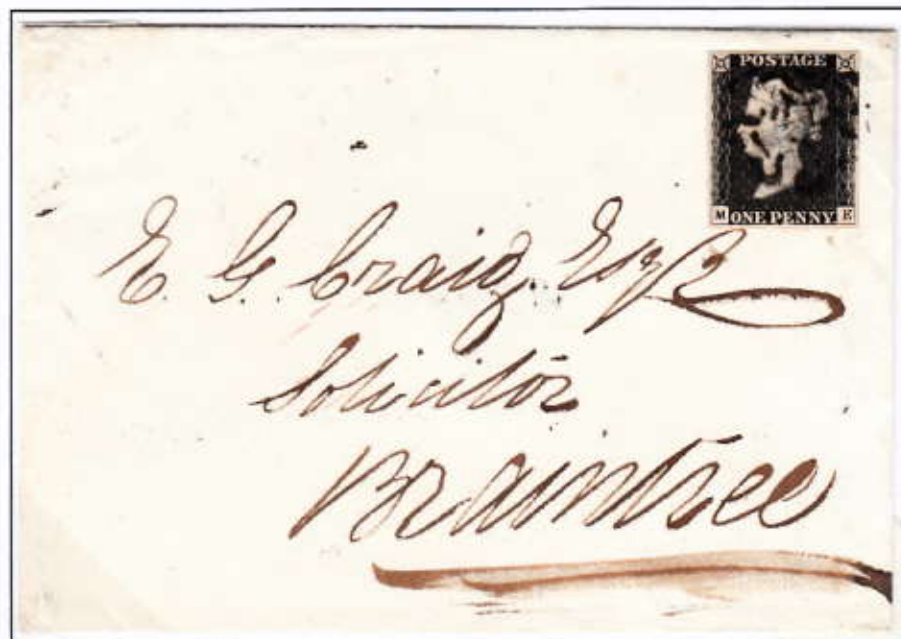 POSTAGE
M ONE PENNY E
E. G. Craig Esqr
Solicitor
Braintree